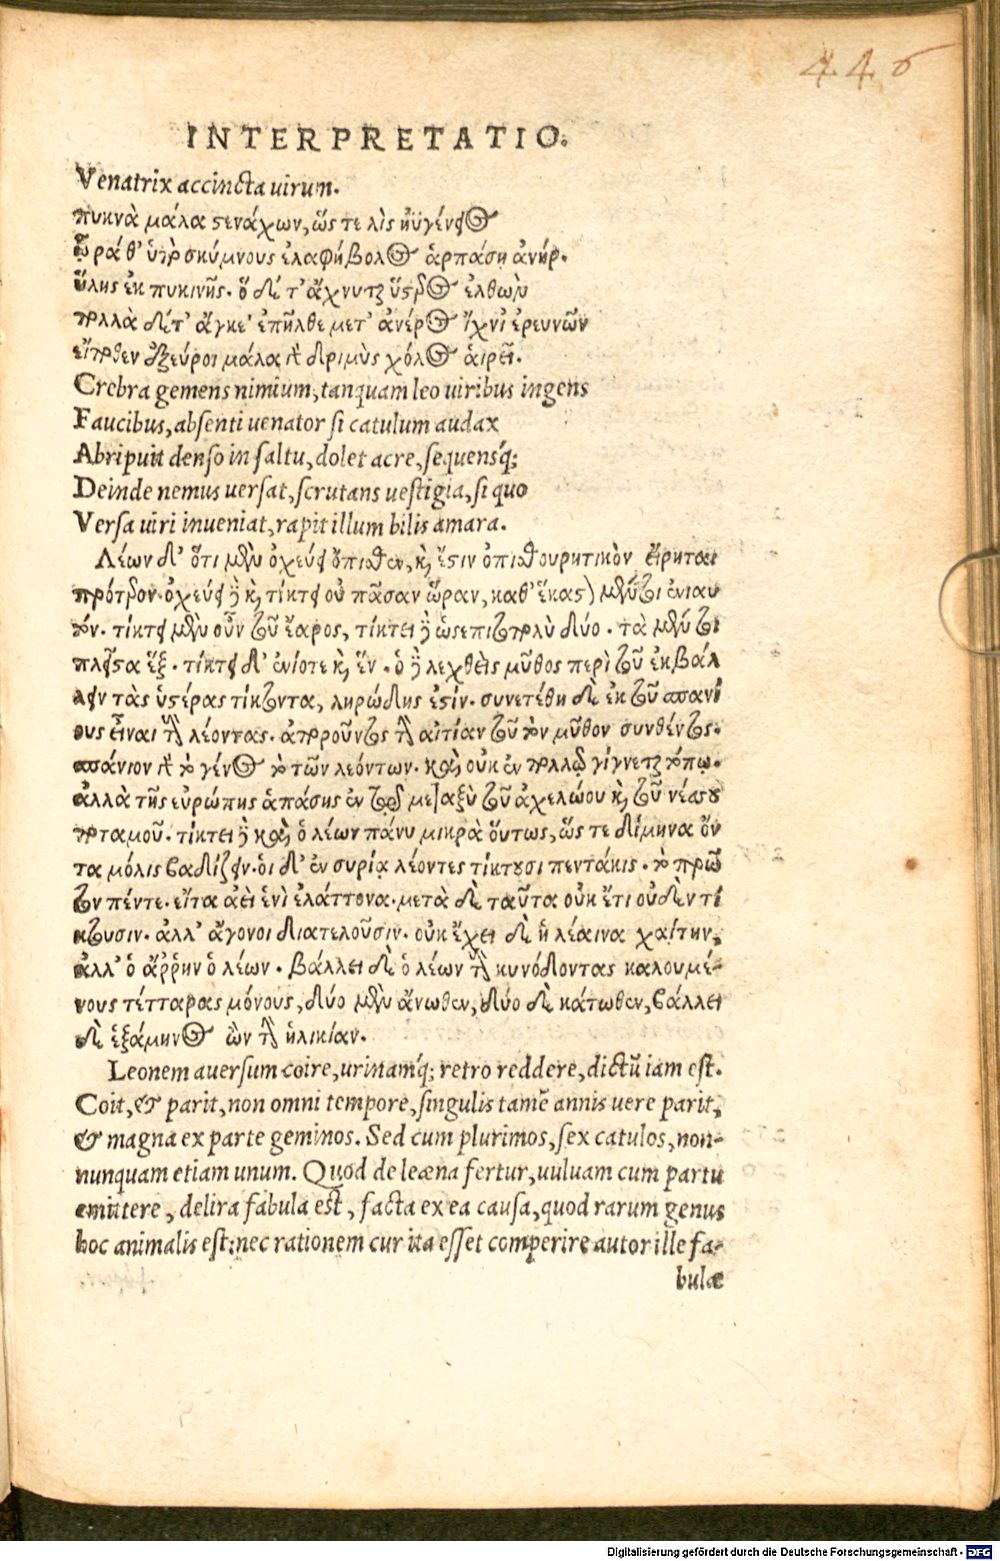 446
INTERPRETATIO.
Venatrix accincta uirum.
πυκνὰ μάλα στενάχων, ὥς τε λὶς ἠϋγένειος
ᾧ ῥά θ' ὑπὸ σκύμνους ἐλαφηβόλος ἁρπάσῃ ἀνήρ.
ὕλης ἐκ πυκινῆς. ὁ δέ τ' ἄχνυται ὕστερος ἐλθὼν
πολλὰ δέ τ' ἄγκε' ἐπῆλθε μετ' ἀνέρος ἴχνι' ἐρευνῶν
εἴποθεν ἐξεύροι μάλα γὰρ δριμὺς χόλος αἱρεῖ.
Crebra gemens nimium, tanquam leo uiribus ingens
Faucibus, absenti uenator si catulum audax
Abripuit denso in saltu, dolet acre, sequensq́;
Deinde nemus uersat, scrutans uestigia, si quo
Versa uiri inueniat, rapit illum bilis amara.
Λέων δ' ὅτι μὲν ὀχεύει ὄπισθεν, καὶ ἔστιν ὀπισθουρητικὸν εἴρηται
πρότερον. ὀχεύει δὲ καὶ τίκτει οὐ πᾶσαν ὥραν, καθ' ἕκαστον μέντοι ἐνιαυ
τόν. τίκτει μὲν οὖν τοῦ ἔαρος, τίκτει δὲ ὡς επιτοπολὺ δύο. τὰ μέντοι
πλεῖστα ἕξ. τίκτει δ' ἐνίοτε καὶ ἕν. ὁ δὲ λεχθεὶς μῦθος περὶ τοῦ ἐκβάλ
λειν τὰς ὑστέρας τίκτοντα, ληρώδης ἐστίν. συνετέθη δὲ ἐκ τοῦ σπανί
ους εἶναι τοὺς λέοντας. ἀποροῦντος τὴν αἰτίαν τοῦ τὸν μῦθον συνθέντος.
σπάνιον γὰρ τὸ γένος τὸ τῶν λεόντων. καὶ οὐκ ἐν πολλῷ γίγνεται τόπῳ.
ἀλλὰ τῆς εὐρώπης ἁπάσης ἐν τῷ μεταξὺ τοῦ ἀχελώου καὶ τοῦ νέσσου
ποταμοῦ. τίκτει δὲ καὶ ὁ λέων πάνυ μικρὰ ὅυτως, ὥς τε δίμηνα ὄν
τα μόλις βαδίζειν. ὁι δ' ἐν συρίᾳ λέοντες τίκτουσι πεντάκις. τὸ πρῶ
τον πέντε. εἴτα ἀεὶ ἑνὶ ἐλάττονα. μετὰ δὲ ταῦτα οὐκ ἔτι οὐδεν τί
κτουσιν. ἀλλ' ἄγονοι διατελοῦσιν. οὐκ ἔχει δὲ ἡ λέαινα χαίτην,
ἀλλ' ὁ ἄῤῥην ὁ λέων. βάλλει δὲ ὁ λέων τοὺς κυνόδοντας καλουμέ-
νους τέτταρας μόνους, δύο μὲν ἄνωθεν, δύο δὲ κάτωθεν, βάλλει
δὲ ἑξάμηνος ὢν τὴν ἡλικίαν.
Leonem auersum coire, urinamq́; retro reddere, dictū iam est.
Coit, & parit, non omni tempore, singulis tamē annis uere parit,
& magna ex parte geminos. Sed cum plurimos, sex catulos, non-
nunquam etiam unum. Quod de leæna fertur, uuluam cum partu
emittere, delira fabula est, facta ex ea causa, quod rarum genus
hoc animalis est: nec rationem cur ita esset comperire autor ille fa-
bulæ
Digitalisierung gefördert durch die Deutsche Forschungsgemeinschaft - DFG